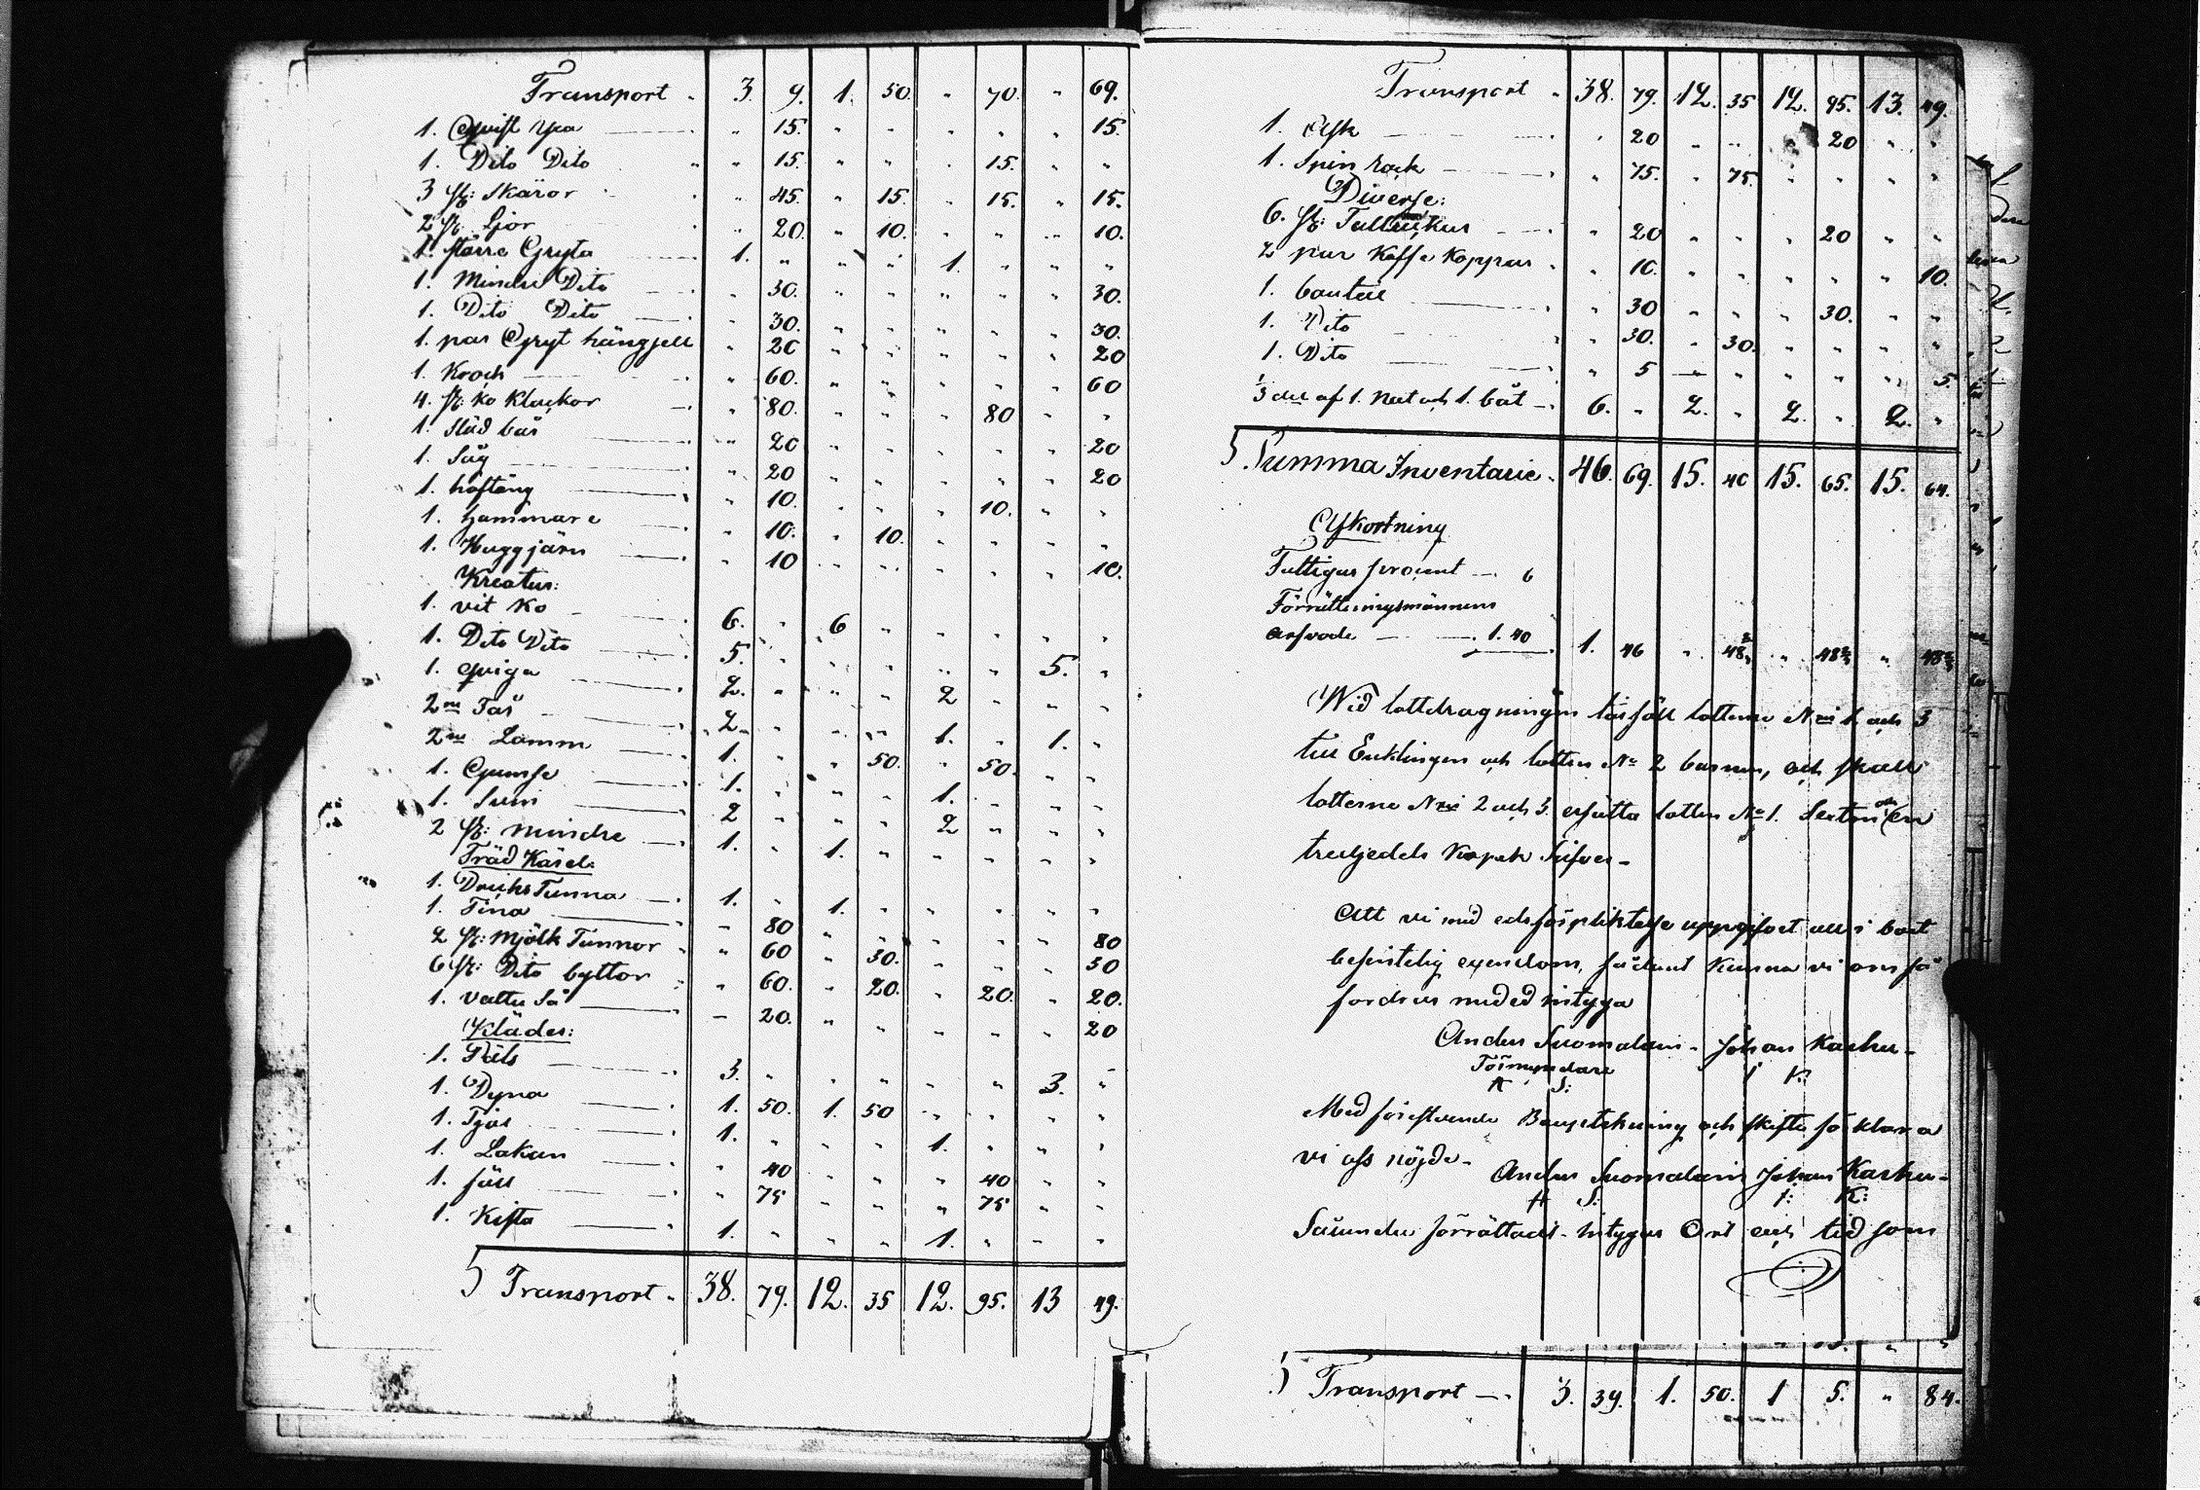 Transport - 3. 9. 1. 50. " 70. " 69.
1. Qvist yxa " 15. " " " " " 15.
1. Dito Dito " 15. " " " 15. " "
3 st: Skäror " 45. " 15. " 15. " 15.
2 st. Ljor " 20. " 10. " " " 10.
1. större Gryta 1. " " " 1. " " "
1. Mindre Dito " 30. " " " " " 30.
1. Dito Dito " 30. " " " " " 30.
1. par Gryt hängjell " 20 " " " " " 20
1. Kroch " 60. " " " " " 60
4. st: ko klackor " 80. " " " 80 " "
1. Släd " 20 " " " " " 20
1. Såg " 20 " " " " " 20
1. hoftång " 10. " " " 10. " "
1. hammare " 10. " 10. " " " "
1. Huggjärn " 10 " " " " " 10.
Kreatur:
1. vit ko 6. " 6 " " " " "
1. Dito Dito 5. " " " " " 5. "
1. qviga 2. " " " 2 " " "
2ne Får 2 " " " 1. " 1. "
2ne Lamm 1. " " 50. " 50. " "
1. Gumse 1. " " " 1. " " "
1. Svin 2 " " " 2 " " "
2 st: mindre 1. " 1. " " " " "
Träd Käril:
1. Dricks Tunna 1. " 1. " " " " "
1. Tina " 80 " " " " " 80
2 st: Mjölk Tunnor " 60 " 30. " " " 30
6 st: Dito byttor " 60. " 20. " 20. " 20.
1. vattu Så " 20. " " " " " 20
Kläder:
1. Päls 3. " " " " " 3. "
1. Dyna 1. 50. 1. 50 " " " "
1. 1. " " " 1. " " "
1. Lakan " 40 " " " 40 " "
1. fäll " 75 " " " 75 " "
1. Kista 1. " " " 1. " " "
Transport - 38. 79. 12. 35 12. 95. 13 49.
Transport - 38. 79. 12. 35 12. 95. 13. 49.
1. Ask " 20 " " " 20 " "
1. Spin rock " 75. " 75. " " " "
Diverse:
6. st: Tallrickar " 20 " " " 20 " "
2 par Kaffe Koppar " 10. " " " " " 10.
1. boutell " 30 " " " 30. " "
1. Dito " 30. " 30. " " " "
1. Dito " 5 " " " " " 5.
1/3 del af 1. Not och 1. båt 6. " 2. " 2. " 2. "
Summa Inventarie - 46. 69. 15. 40 15. 65. 15. 64.
Afkortning
Fattigas procent 6
Förrättningsmännens
arfvode 1.40 1. 46 " 48 2/3 " 48 2/3 " 48 2/3
Wid lottdragningen tillföll lotterne N 1 och 3
till Enklingen och lotten No 2 barnen, och skall
lotterne N 2 och 3. ersätta lotten No 1. sexton och en
tredjedels Kopek Silfver -
Att vi med edsförpliktelse uppgifvet all i boet
befintelig egendom, sådant kunna vi om så
fordras med ed intyga
Anders Suomalain - Johan Karhu -
Förmyndare
A S: J K:
Med förestående Bouptekning och skifte förklara
vi oss nöjde - Anders Suomalain Johan Karhu -
A S: J: K:
Sålunda förrättadt - intygar Ort och tid som
Transport 3. 39. 1. 50. 1 5. " 84.